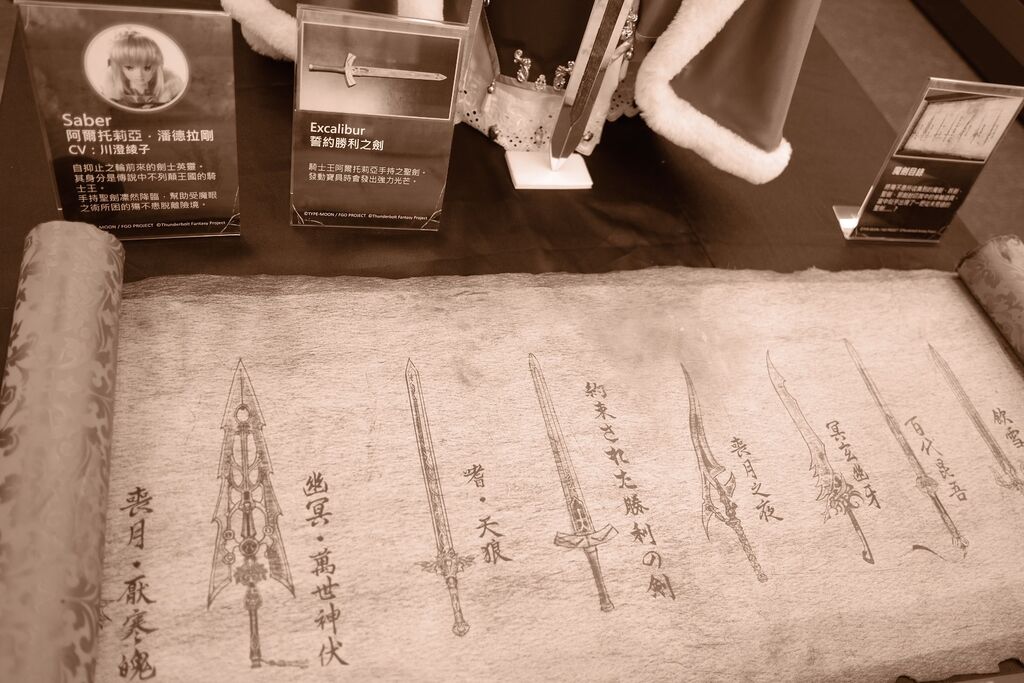 Saber
阿爾托莉亞・潘德拉剛
CV：川澄綾子
自抑止之輪前來的劍士英靈。
其身分是傳說中不列顛王國的騎
士王。
手持聖劍凜然降臨，幫助受魔眼
之術所困的殤不患脫離險境。
©TYPE-MOON / FGO PROJECT ©Thunderbolt Fantasy Project
Excalibur
誓約勝利之劍
騎士王阿爾托莉亞手持之聖劍。
發動寶具時會發出強力光芒。
©TYPE-MOON / FGO PROJECT ©Thunderbolt Fantasy Project
魔劍目錄
喪月・厭寒・魄
幽冥・萬世神伏
嗜・天狼
約束された勝利の劍
喪月之夜
冥玄幽牙
百代昆吾
飲雪